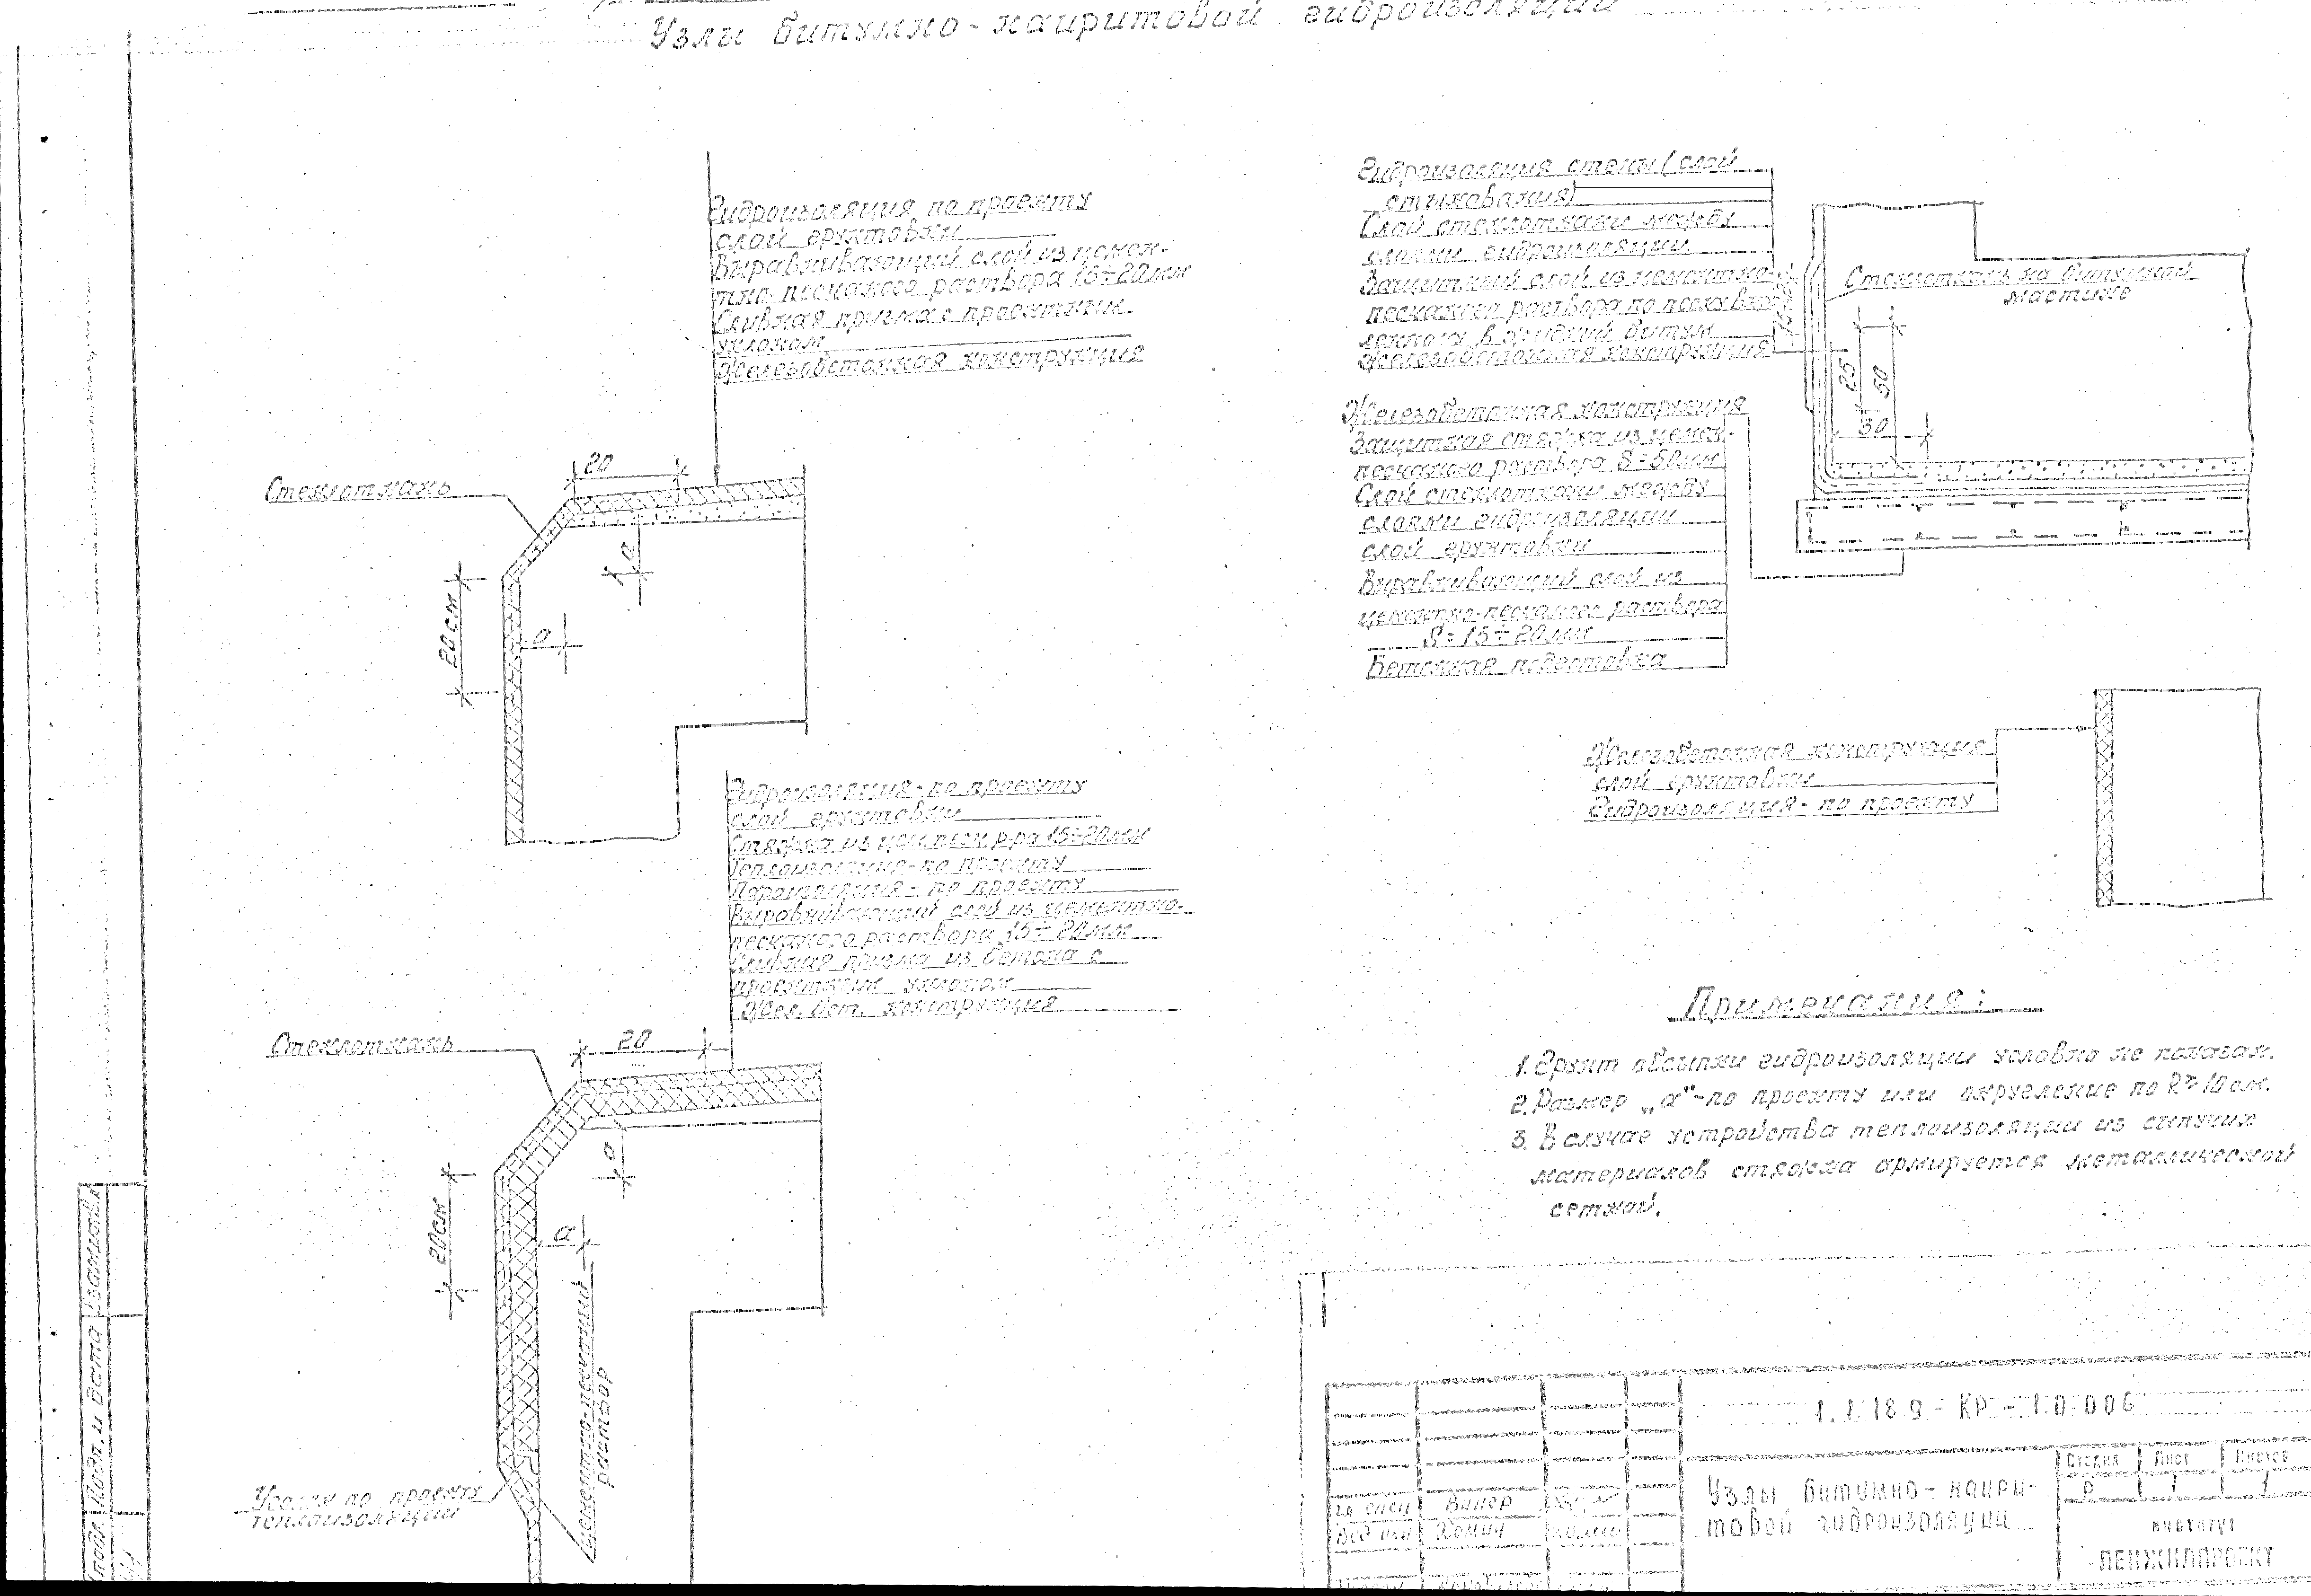 Узлы битумно-наиритовой гидроизоляции
Гидроизоляция по проекту
слой грунтовки
Выравнивающий слой из цемен-
тно-песчаного раствора 15÷20мм
Сливная призма с проектным
уклоном
Железобетонная конструкция
Стеклоткань
20
а
20см
а
Гидроизоляция-по проекту
слой грунтовки
Стяжка из цем.песч.р-ра 15÷20мм
Теплоизоляция-по проекту
Пароизоляция-по проекту
Выравнивающий слой из цементно-
песчаного раствора 15÷20мм
Сливная призма из бетона с
проектным уклоном
Жел. бет. конструкция
Стеклоткань
20
а
20см
а
цементно-песчаный
раствор
по проекту
теплоизоляции
Гидроизоляция стены (слой
стыкования)
Слой стеклоткани между
слоями гидроизоляции
Защитный слой из цементно-
песчаного раствора по песку
в жидкий битум
Железобетонная конструкция
Стеклоткань на битумной
мастике
25
50
30
Железобетонная конструкция
Защитная стяжка из цемен-
песчаного раствора S=50мм
Слой стеклоткани между
слоями гидроизоляции
слой грунтовки
Выравнивающий слой из
цементно-песчаного раствора
S=15÷20мм
Бетонная подготовка
Железобетонная конструкция
слой грунтовки
Гидроизоляция-по проекту
Примечания:
1. Грунт обсыпки гидроизоляции условно не показан.
2. Размер „а"-по проекту или округление по R≥10см.
3. В случае устройства теплоизоляции из сыпучих
материалов стяжка армируется металлической
сеткой.
1.1.189-КР-1.0.006
Узлы битумно-наири-
товой гидроизоляции
Стадия Лист Листов
Р 1 1
институт
ЛЕНЖИЛПРОЕКТ
гл. спец Винер
Вед инж Хомич
Подп. и дата